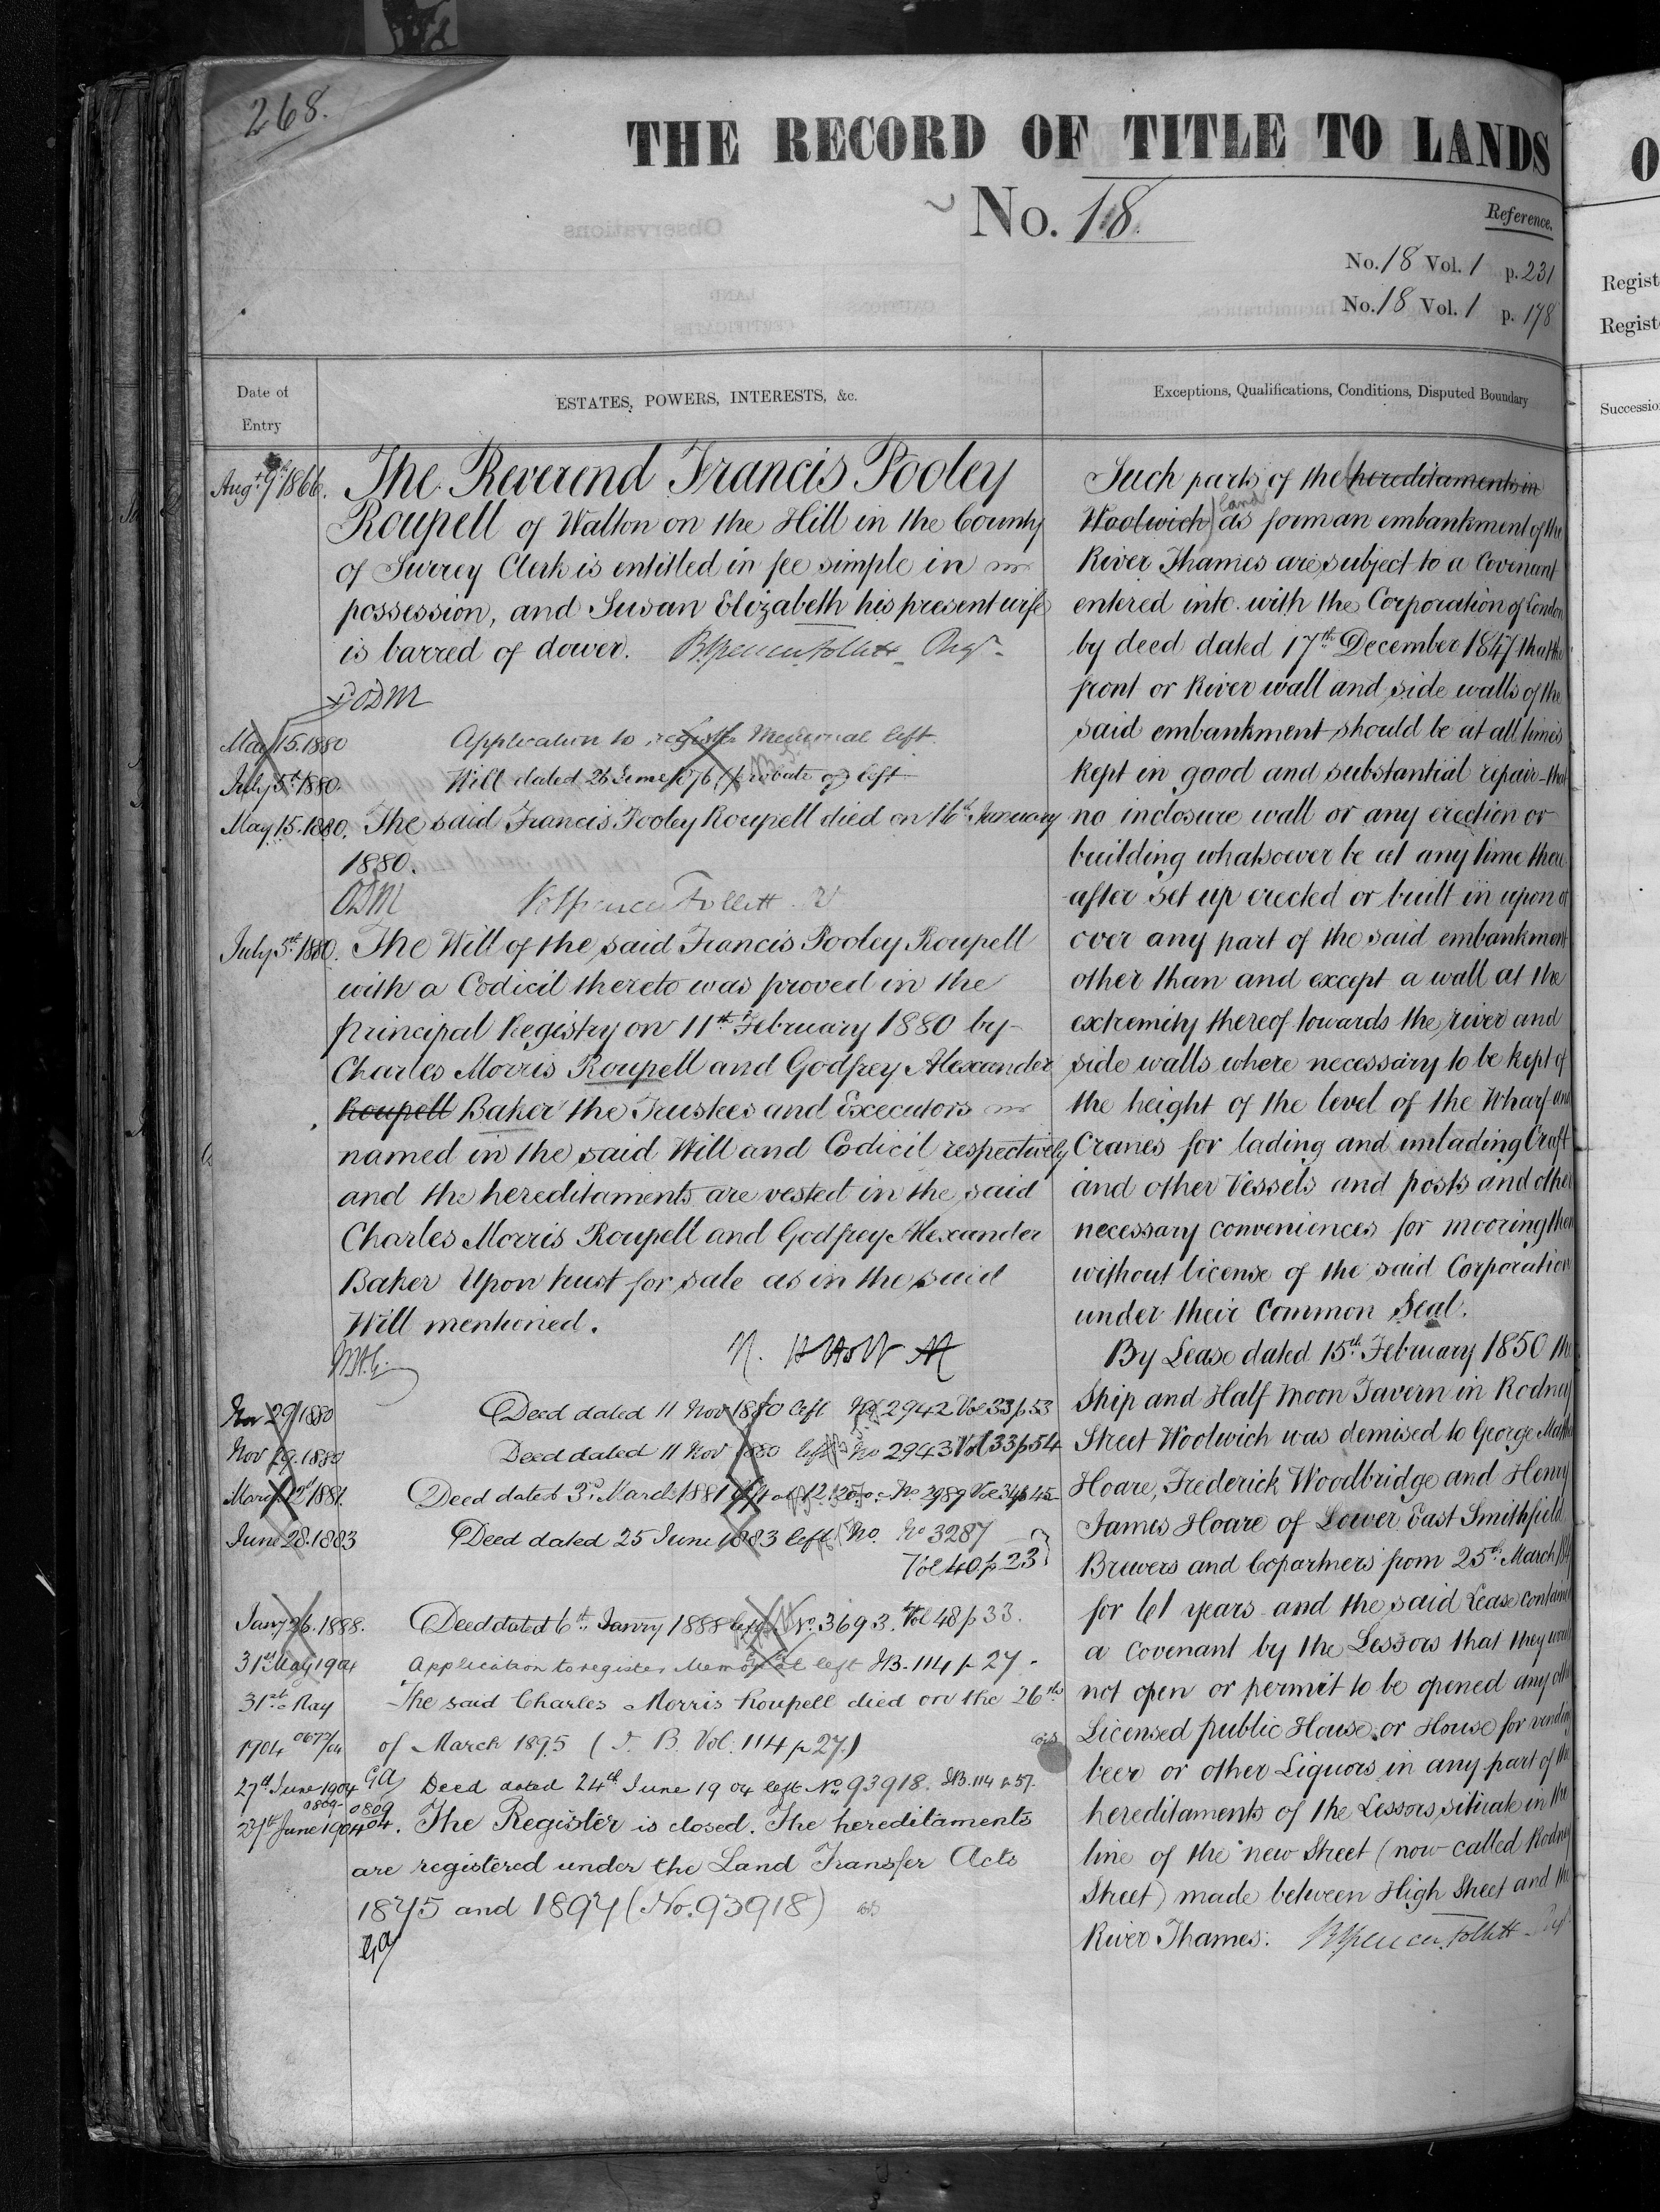 268.
THE RECORD OF TITLE TO LANDS
No. 18.
Reference.
No. 18 Vol. 1 p. 231
No. 18 Vol. 1 p. 178
Date of Entry
ESTATES, POWERS, INTERESTS, &c.
Exceptions, Qualifications, Conditions, Disputed Boundary
Augt. 9th 1866. The Reverend Francis Pooley
Roupell of Walton on the Hill in the County
of Surrey Clerk is entitled in fee simple in
possession, and Susan Elizabeth his present wife
is barred of dower. B Spencer Follett Regr.
ODM
May 15. 1880 Application to register Memorial left.
July 5th 1880. Will dated 26 June 1876 (probate of) left
May 15. 1880. The said Francis Pooley Roupell died on 16th January
1880.
ODM Spencer Follett R
July 5th 1880. The Will of the said Francis Pooley Roupell
with a Codicil thereto was proved in the
principal Registry on 11th February 1880 by
Charles Morris Roupell and Godfrey Alexander
Roupell Baker the Trustees and Executors
named in the said Will and Codicil respectively
and the hereditaments are vested in the said
Charles Morris Roupell and Godfrey Alexander
Baker Upon trust for sale as in the said
Will mentioned.
Nov 29 1880 Deed dated 11 Nov 1880 left No 2942 Vol 33 p 53
Nov 29. 1880 Deed dated 11 Nov 1880 left No 2943 Vol 33 p 54
March 12th 1881. Deed dated 3rd March 1881 left at 12. No. 2989 Vol 34 p 45
June 28. 1883 Deed dated 25 June 1883 left No. No 3287
Vol 40 p 23
Jany 26. 1888. Deed dated 6th Janry 1888 left No. 3693. Vol 48 p 33.
31st May 1904 Application to register Memorial left IB. 114 p 27.
31st May The said Charles Morris Roupell died on the 26th
1904 0677/04 of March 1895 (I. B. Vol. 114 p 27.)
27th June 1904 GA Deed dated 24th June 1904 left No. 93918. IB. 114 p 57.
0809
27th June 1904 0809/04. The Register is closed. The hereditaments
are registered under the Land Transfer Acts
1875 and 1897 (No. 93918)
GA
Such parts of the (hereditaments in
Woolwich) land as form an embankment of the
River Thames are subject to a Covenant
entered into with the Corporation of London
by deed dated 17th December 1847 that the
front or River wall and side walls of the
said embankment should be at all times
kept in good and substantial repair - that
no inclosure wall or any erection or
building whatsoever be at any time there
after set up erected or built in upon or
over any part of the said embankment
other than and except a wall at the
extremity thereof towards the river and
side walls where necessary to be kept of
the height of the level of the Wharf and
Cranes for lading and unlading Craft
and other Vessels and posts and other
necessary conveniences for mooring them
without license of the said Corporation
under their Common Seal.
By Lease dated 15th February 1850 the
Ship and Half Moon Tavern in Rodney
Street Woolwich was demised to George
Hoare, Frederick Woodbridge and Henry
James Hoare of Lower East Smithfield
Brewers and Copartners from 25th March
for 61 years and the said Lease contained
a Covenant by the Lessors that they would
not open or permit to be opened any other
Licensed public House or House for vending
beer or other Liquors in any part of the
hereditaments of the Lessors situate in the
line of the new Street (now called Rodney
Street) made between High Street and the
River Thames. B Spencer Follett Regr
O
Regist
Regist
Successio